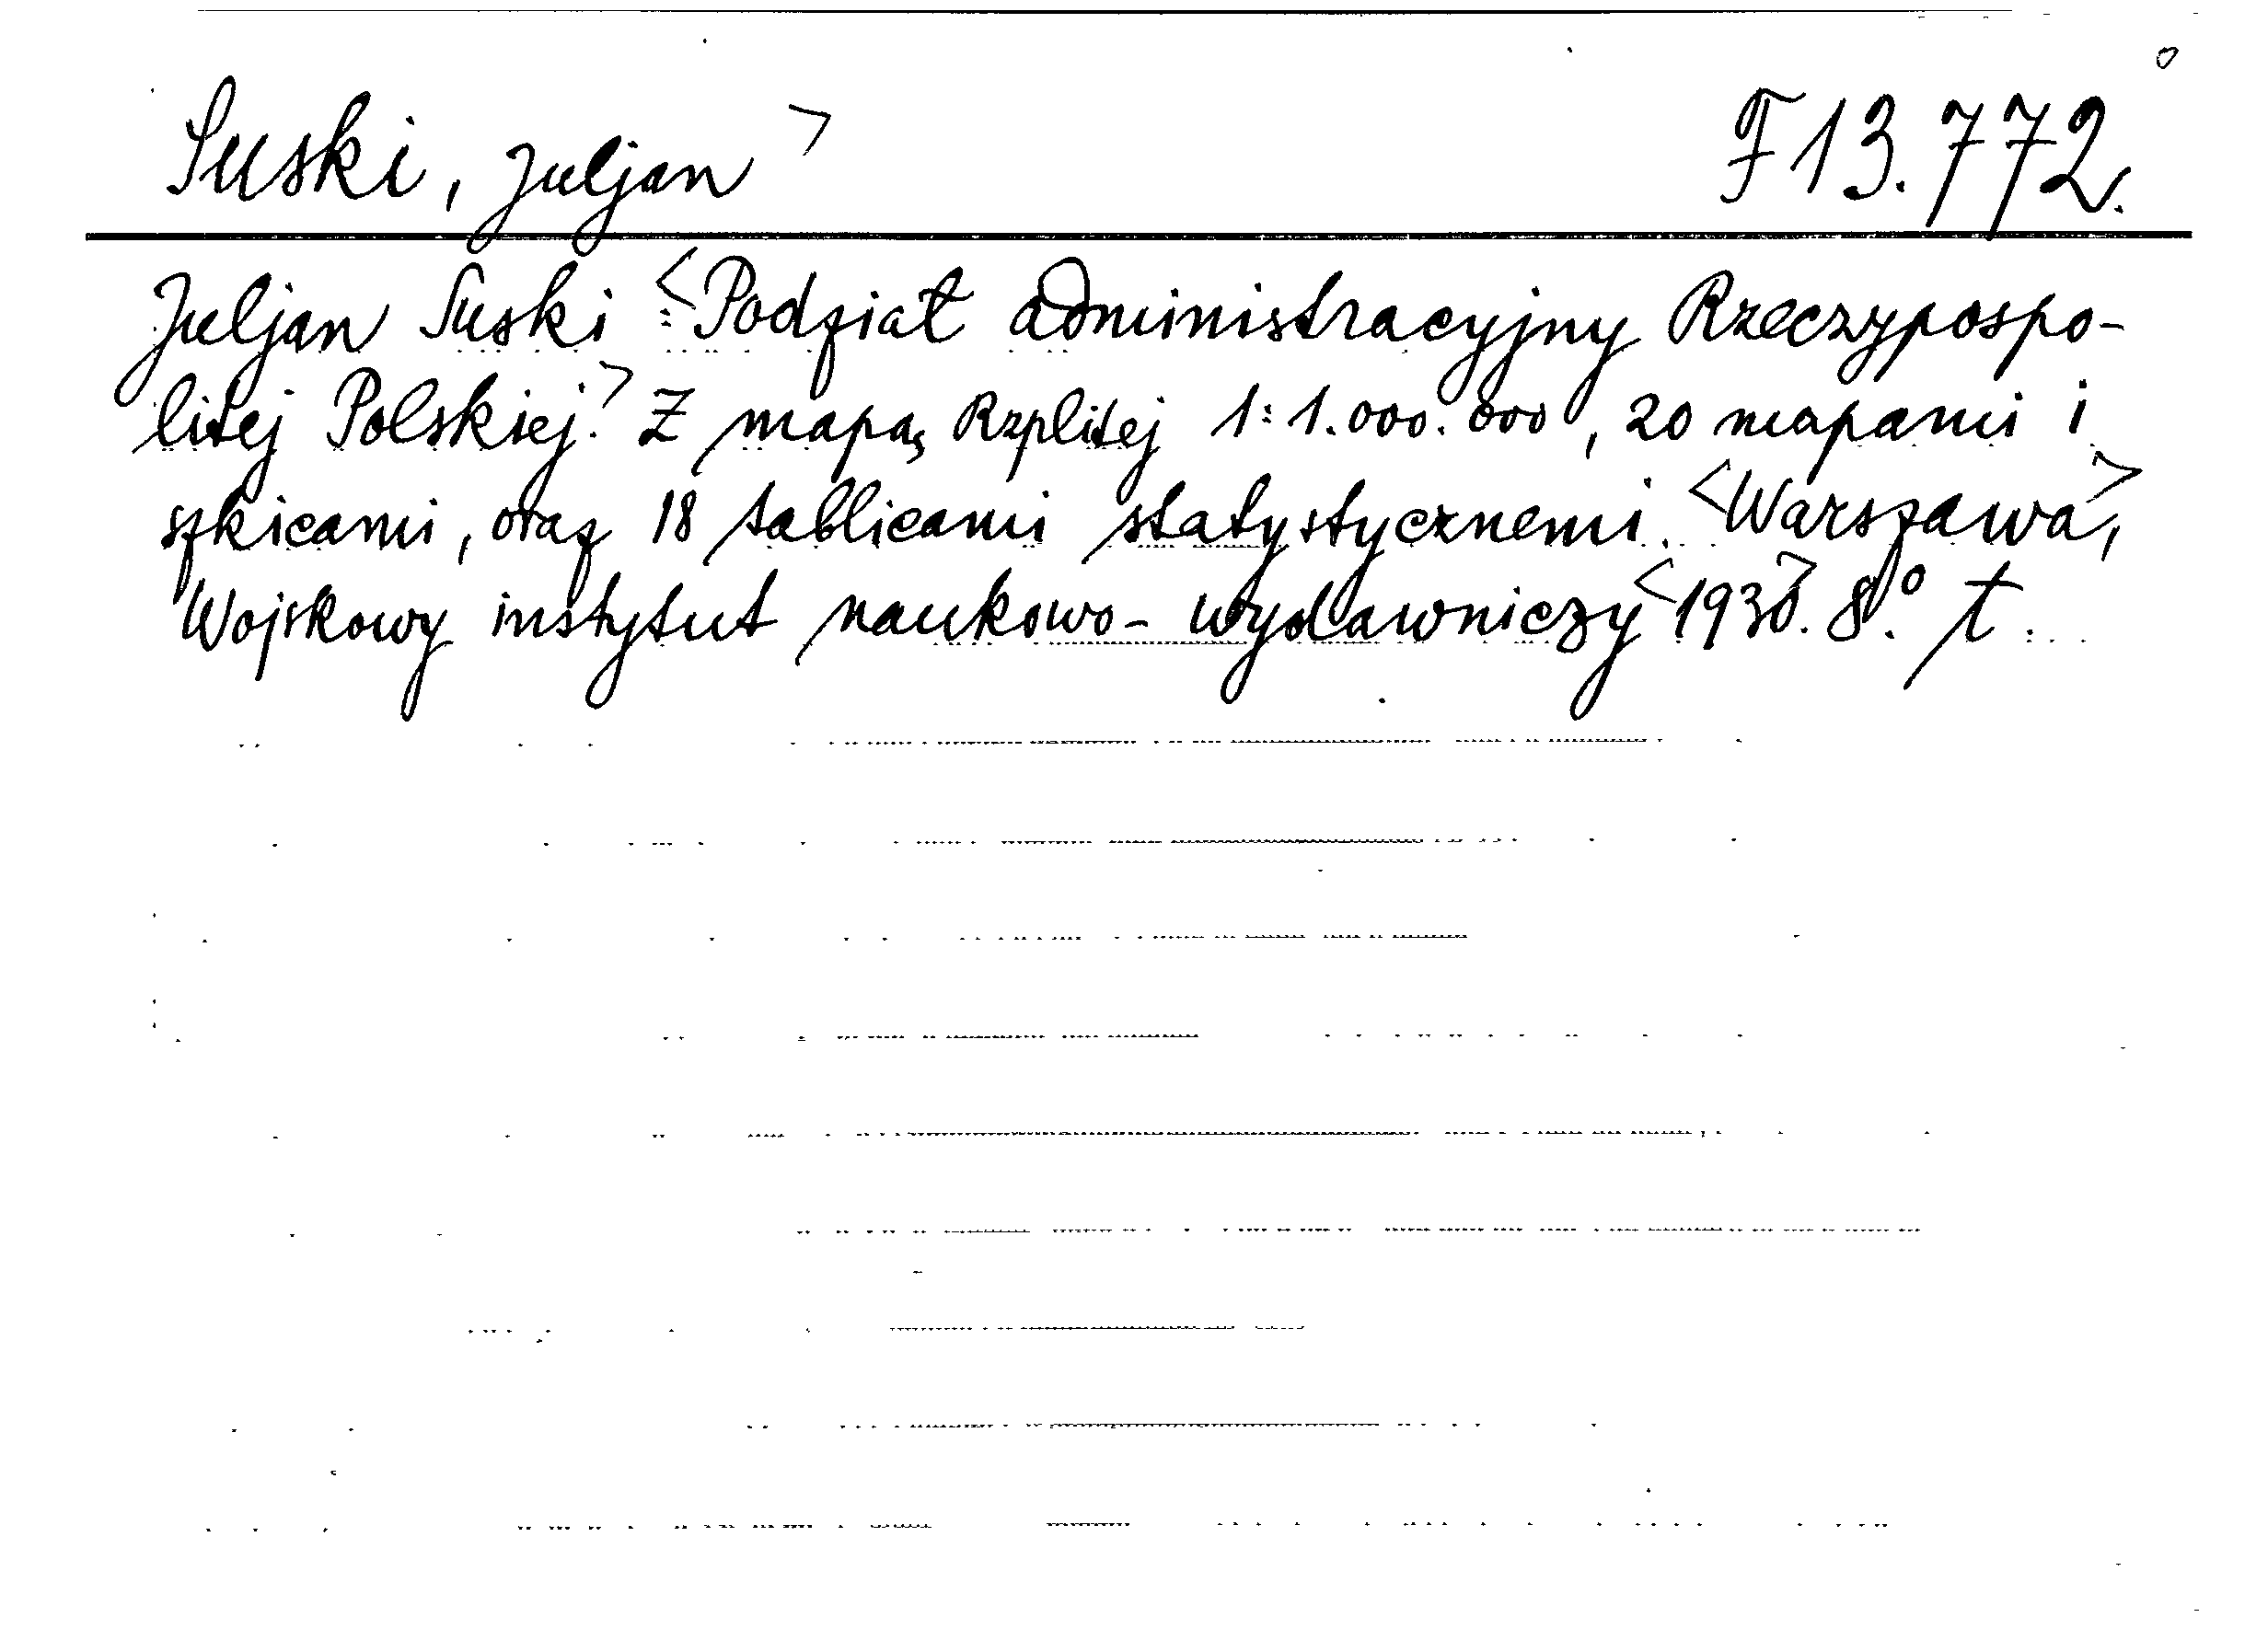 Suski, Juljan> F13.772.
Juljan Suski :<Podział administracyjny Rzeczypospo-
litej Polskiej.> Z mapą Rzplitej 1:1.000.000, 20 mapami i
szkicami, oraz 18 tablicami statystycznemi. <Warszawa>,
Wojskowy instytut naukowo-wydawniczy <1930>. 8°. t